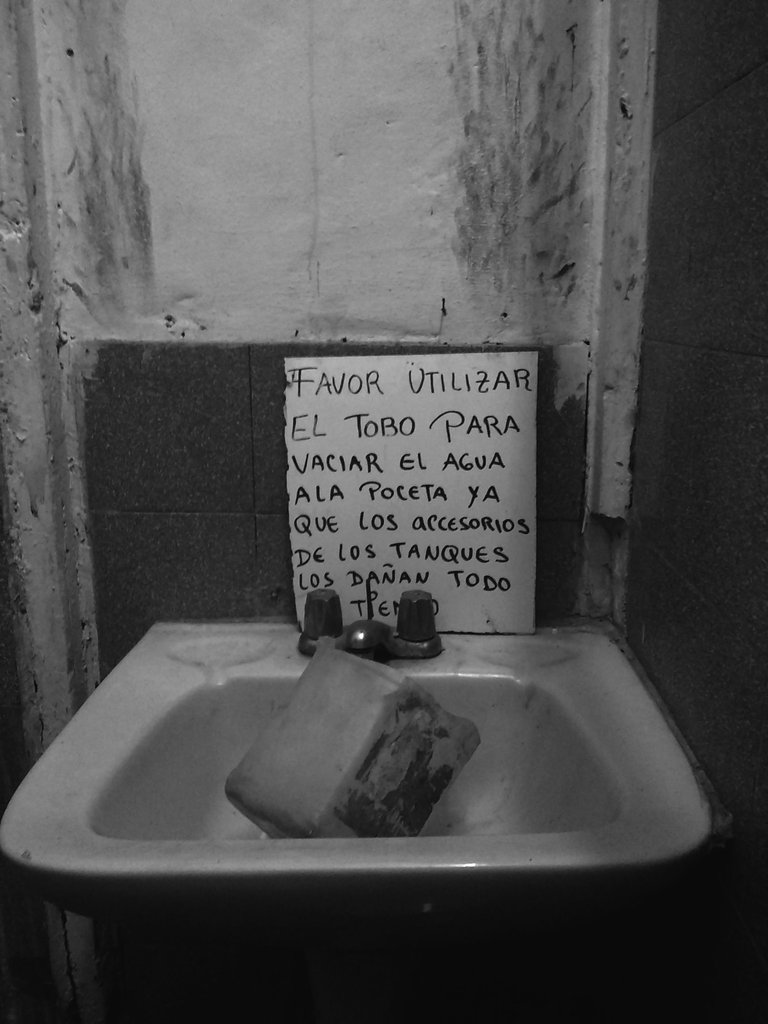 FAVOR UTILIZAR
EL TOBO PARA
VACIAR EL AGUA
ALA POCETA YA
QUE LOS ACCESORIOS
DE LOS TANQUES
LOS DAÑAN TODO